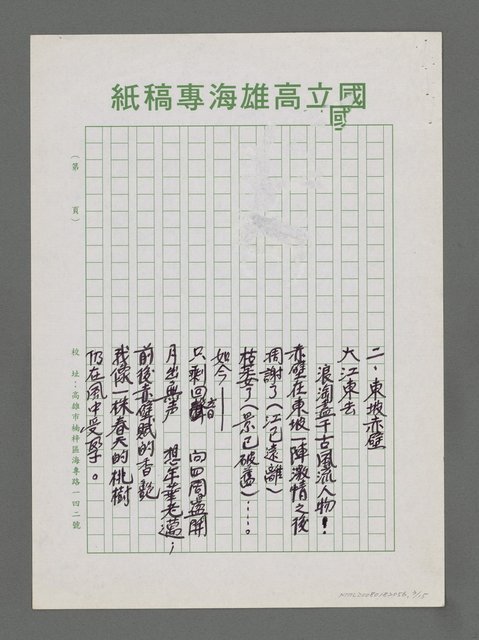 國立高雄海專稿紙
國
(第　頁)
二、東坡赤壁
大江東去
浪淘盡千古風流人物！
赤壁在東坡一陣激情之後
凋謝了(江已遠離)
枯萎了(景已破舊)……。
如今——
只剩回音 向四周盪開
月出無声 想年華老邁；
前後赤壁賦的香艷
我像一株春天的桃樹
仍在風中
校 址：高雄市楠梓區海專路一四二號
NMTL20080182056, 7/15